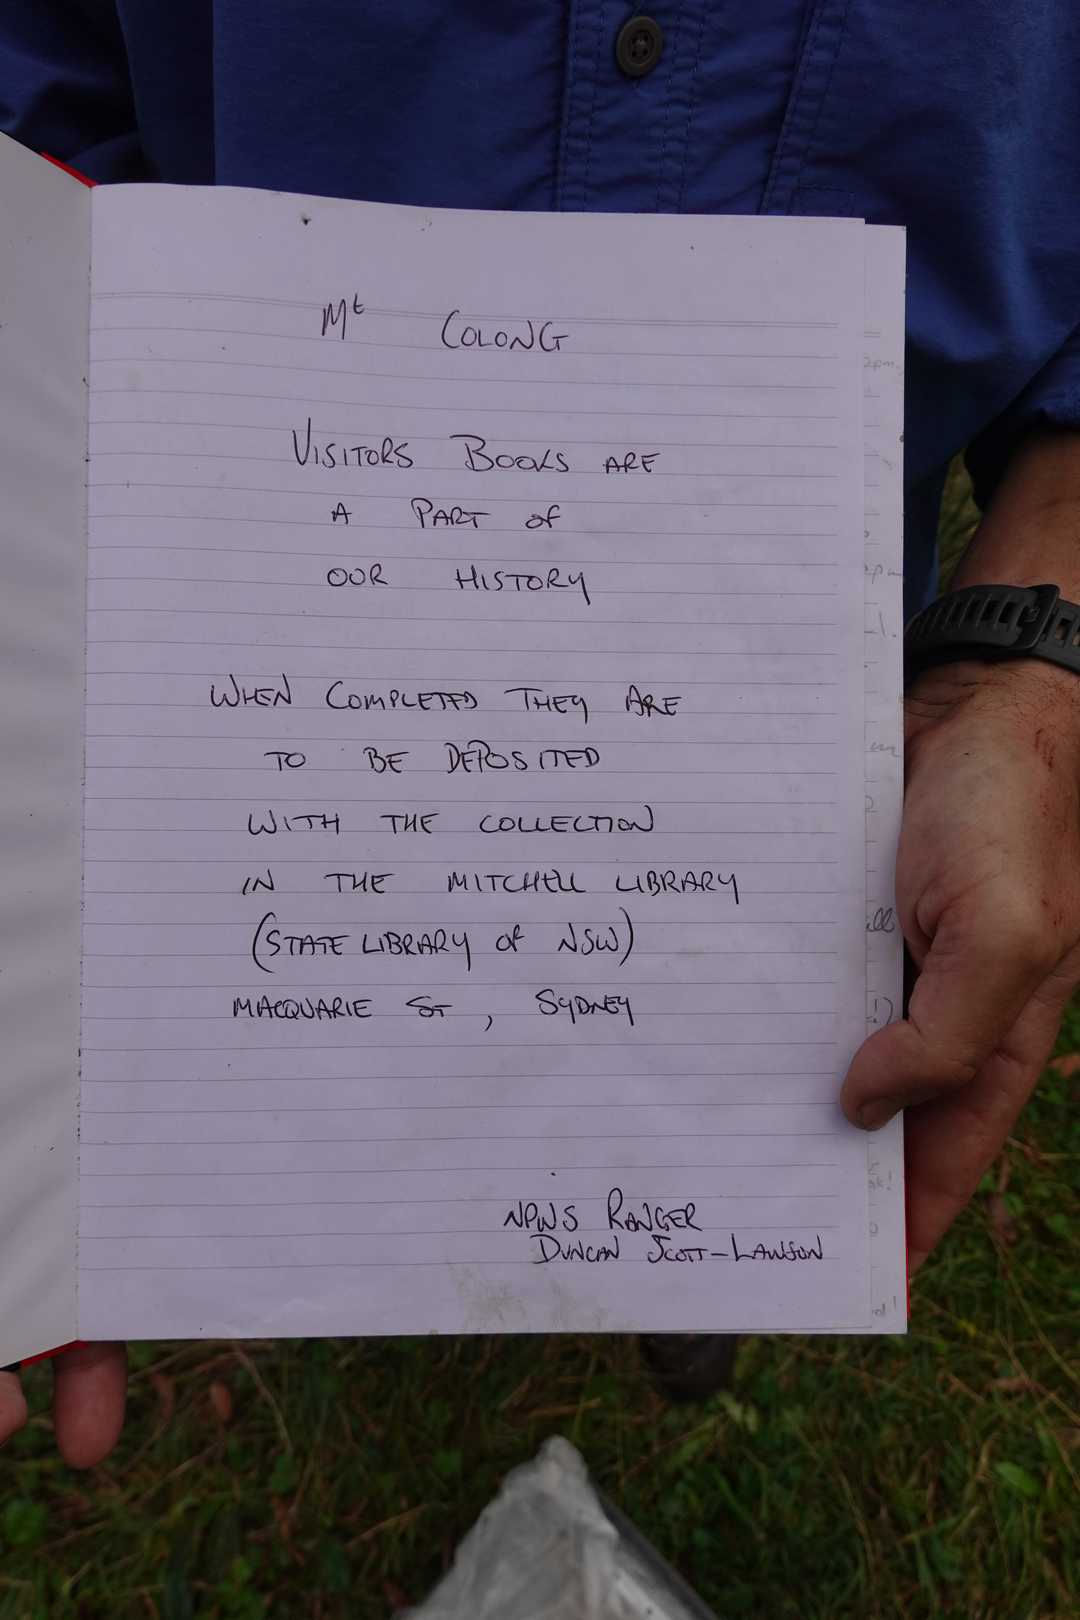 Mt COLONG
VISITORS BOOKS ARE
A PART of
OUR HISTORY
WHEN COMPLETED THEY ARE
TO BE DEPOSITED
WITH THE COLLECTION
IN THE MITCHELL LIBRARY
(STATE LIBRARY of NSW)
MACQUARIE ST, SYDNEY
NPWS RANGER
DUNCAN SCOTT-LAWSON